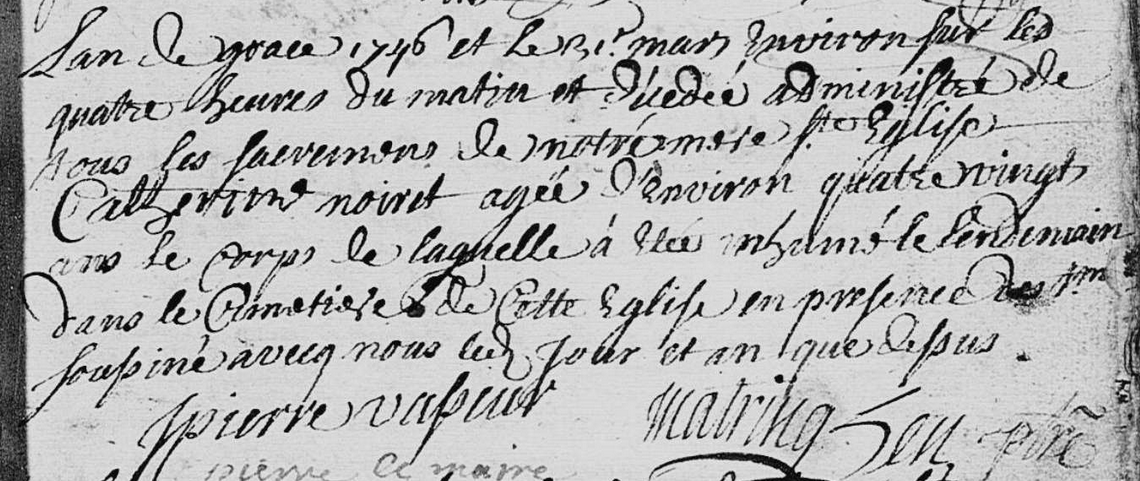 Lan de grace 1746 et le 31e mars Environ sur les
quatre heures du matin et déédée administré de
tous les sacremens de notre mere ste Eglise
Catherine noiret agée d'Environ quatre vingt
ans le corps de laquelle à Eté inhumé le lendemain
dans le Cimetiere de Cette Eglise en presence des tm
soussiné avecq nous lesd Jour et an que dessus.
pierre vasseur matring
pierre le maire